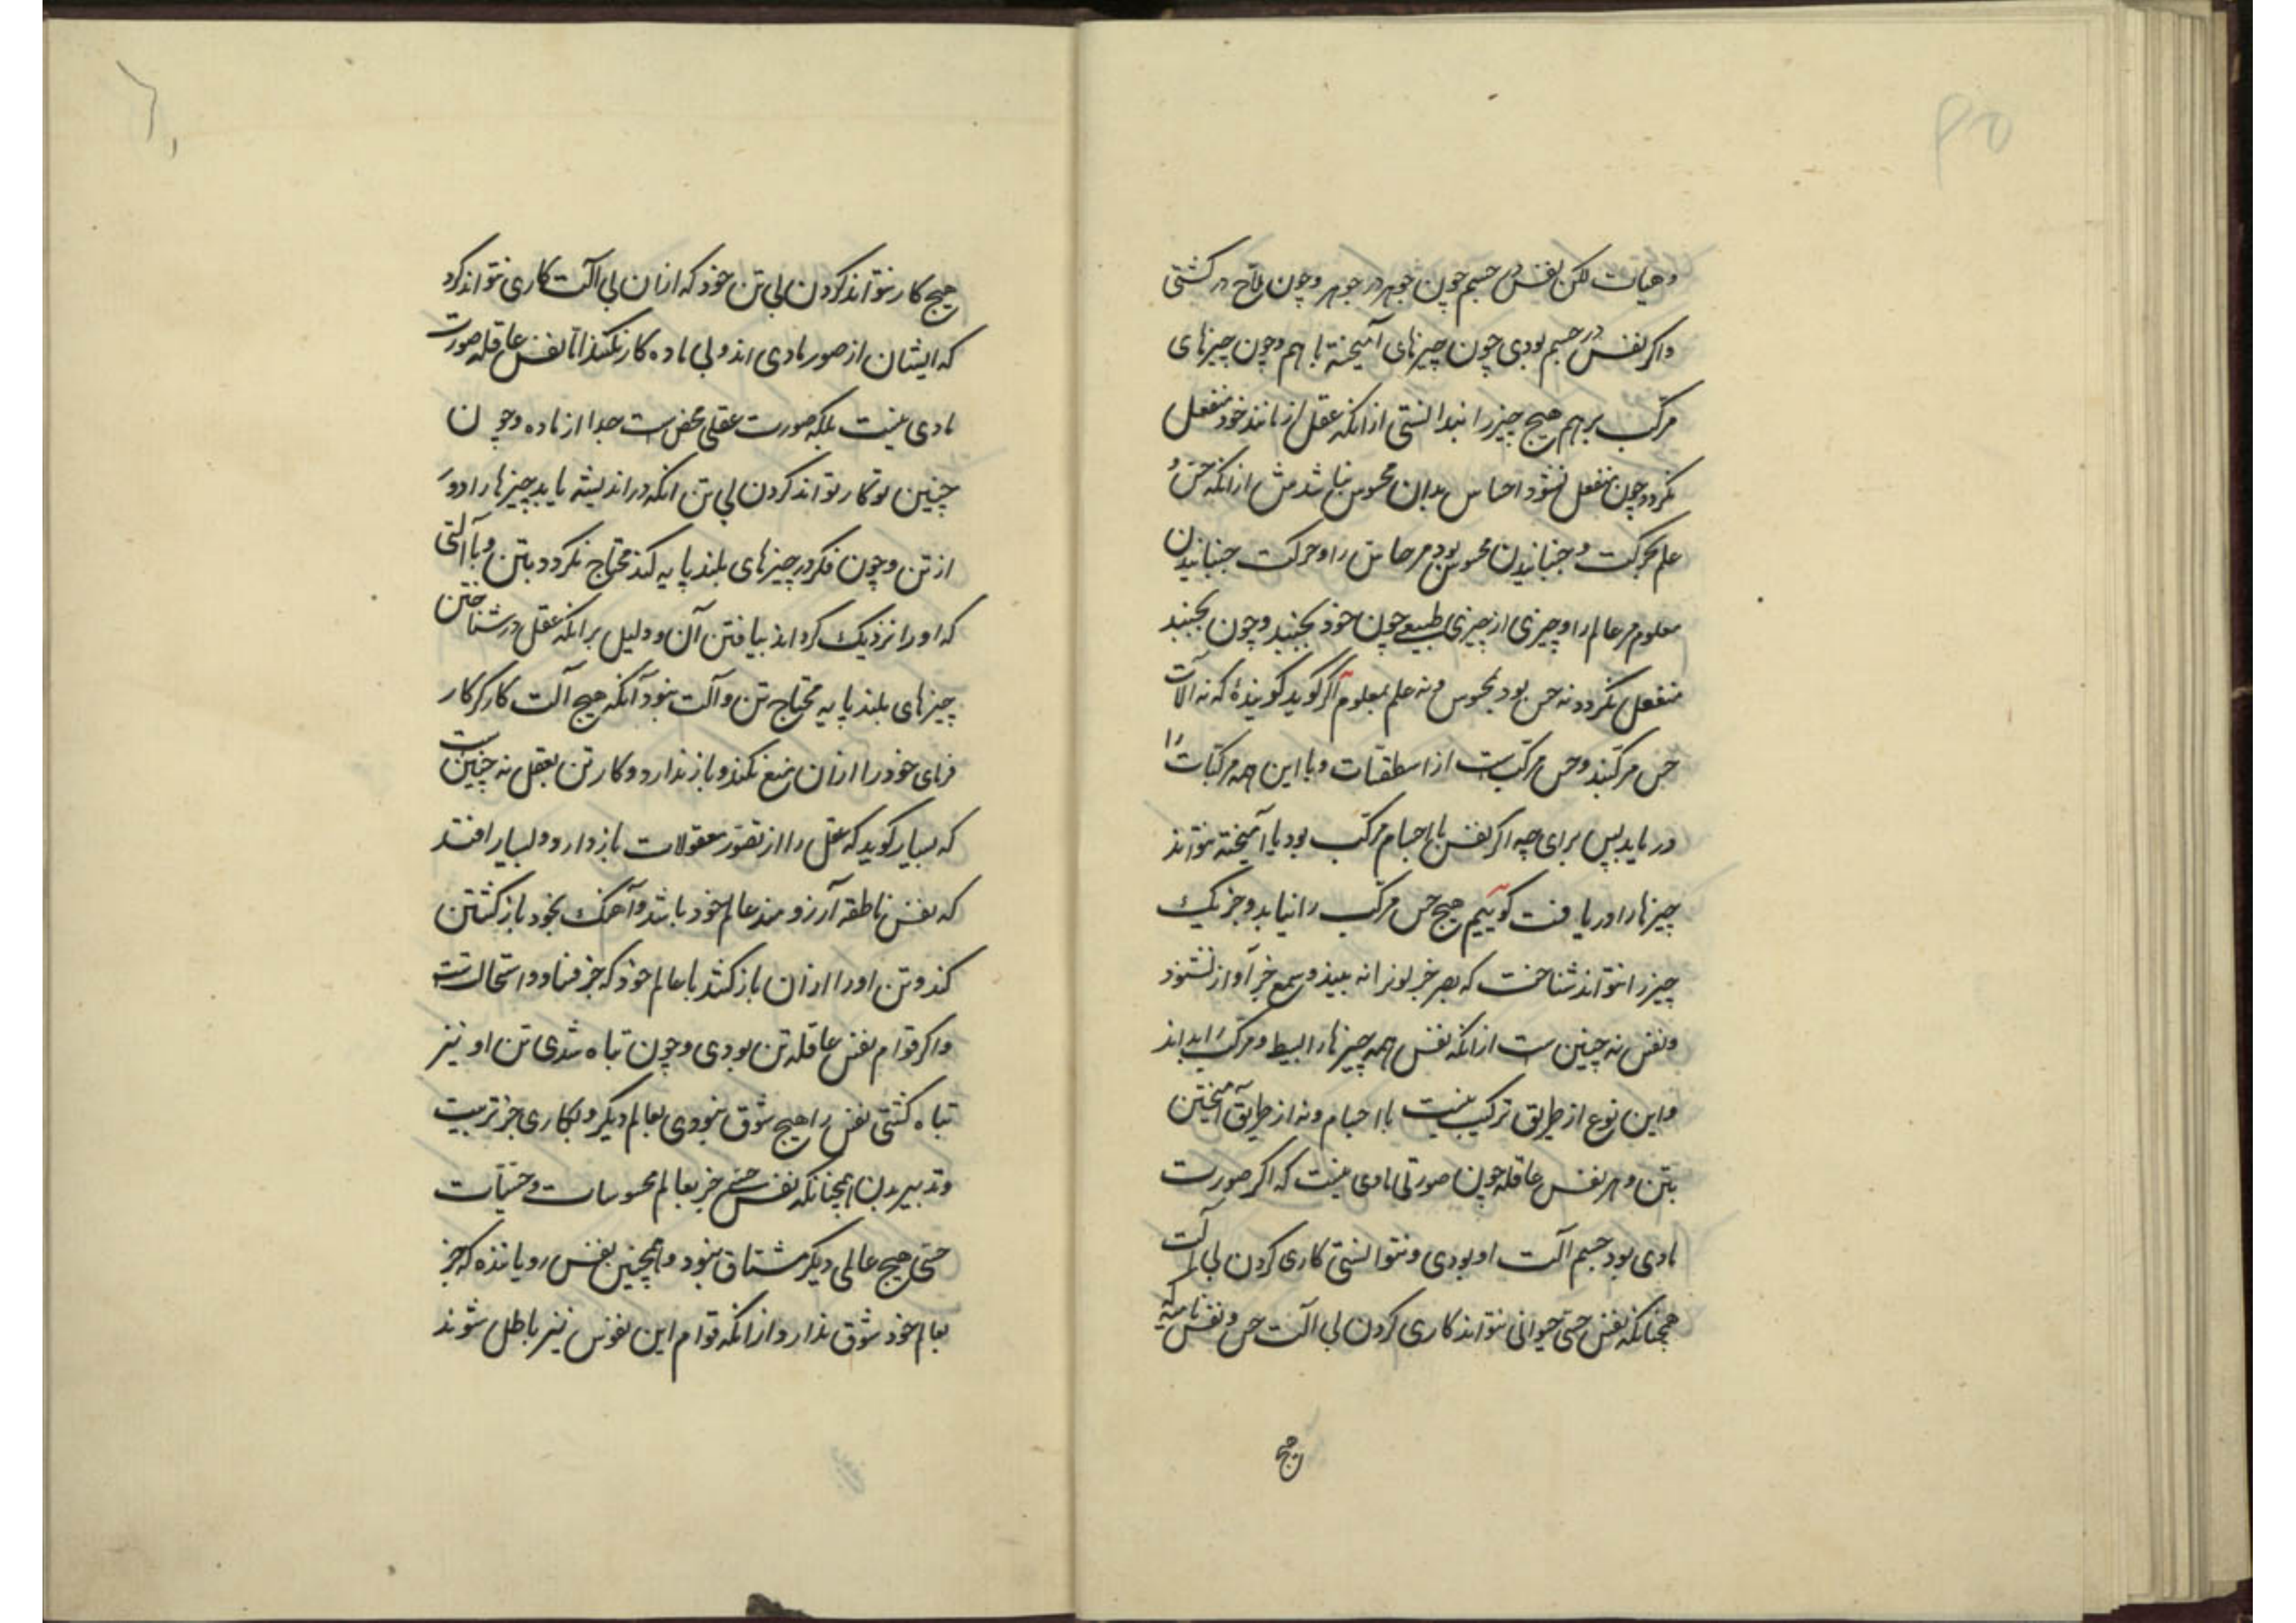 ۵۹
و هیات لکن نفس در جسم چون جوهر در جوهر و چون ملاح در کشتی
و اکر نفس در جسم بودی چون چیزهای آمیخته با هم و چون چیزهای
مرکب بر هم هیچ چیز را ندانستی از آنکه عقل از مانند خود منفعل
نکردد چون منفعل نشود احساس بدان محسوس نباشدش از انکه حس و
علم بحرکت و جنبانیدن محسوس بود مر حاس را و حرکت جنبانیدن
معلوم مر عالم را و چیزی از چیزی طبیعی چون خود نجنبد و چون نجنبد
منفعل نکردد نه حس بود بمحسوس و نه علم بمعلوم اکر کوید کوینده که نه آلات
حس مرکبند و حس مرکبست از اسطقسات و با این همه مرکبات را
دریابد پس برای چه اکر نفس با اجسام مرکب بود یا آمیخته نتواند
چیزها را دریافت کوییم هیچ حس مرکب را نیابد و جز یک
چیز را نتواند شناخت که بصر جز لون را نه بیند و سمع جز آواز نشنود
و نفس نه چنین ست از انکه نفس همه چیزها را بسیط و مرکب را بداند
و این نوع از طریق ترکیب نیست با اجسام و نه از طریق آمیختن
بتن و هر نفس عاقله چون صورتی مادی نیست که اکر صورت
مادی بود جسم آلت او بودی و نتوانستی کاری کردن بی آلت
همچنانکه نفس حسی حیوانی نتواند کاری کردن بی آلت حس و نفس نامیه که
هیچ
۶۰
هیچ کار نتواند کردن بی تن خود که از ان بی آلت کاری نتواند کرد
که ایشان از صور مادی اند و بی ماده کار نکنند اما نفس عاقله صورت
مادی نیست بلکه صورت عقلی محض ست جدا از ماده و چون
چنین بود کار تواند کردن بی تن انکه در اندیشه یابد چیزها را دور
از تن و چون فکر در چیزهای بلند پایه کند محتاج نکردد بتن و بآلتی
که او را نزدیک کرداند بیافتن آن و دلیل بر انکه عقل در شناختن
چیزهای بلند پایه محتاج تن و آلت نبود آنکه هیچ آلت کارکر کار
فرمای خود را از ان منع نکند و باز ندارد و کار تن بعقل نه چنین ست
که بسیار کوید که عقل را از تصور معقولات باز دارد و بسیار افتد
که نفس ناطقه آرزومند عالم خود باشد و آهنک بخود باز کشتن
کند و تن او را از ان باز کشد با عالم خود که جز فساد و استحالت نیست
و اکر قوام نفس عاقله تن بودی و چون تباه شدی تن او نیز
تباه کشتی نفس را هیچ شوق نبودی بعالم دیکر و بکاری جز تربیت
و تدبیر بدن همچنانکه نفس حسی جز بعالم محسوسات و حسیات
حسی هیچ عالمی دیکر مشتاق نبود و همچنین نفس رویاننده که جز
بعالم خود شوق ندارد از انکه قوام این نفوس نیز باطل شوند